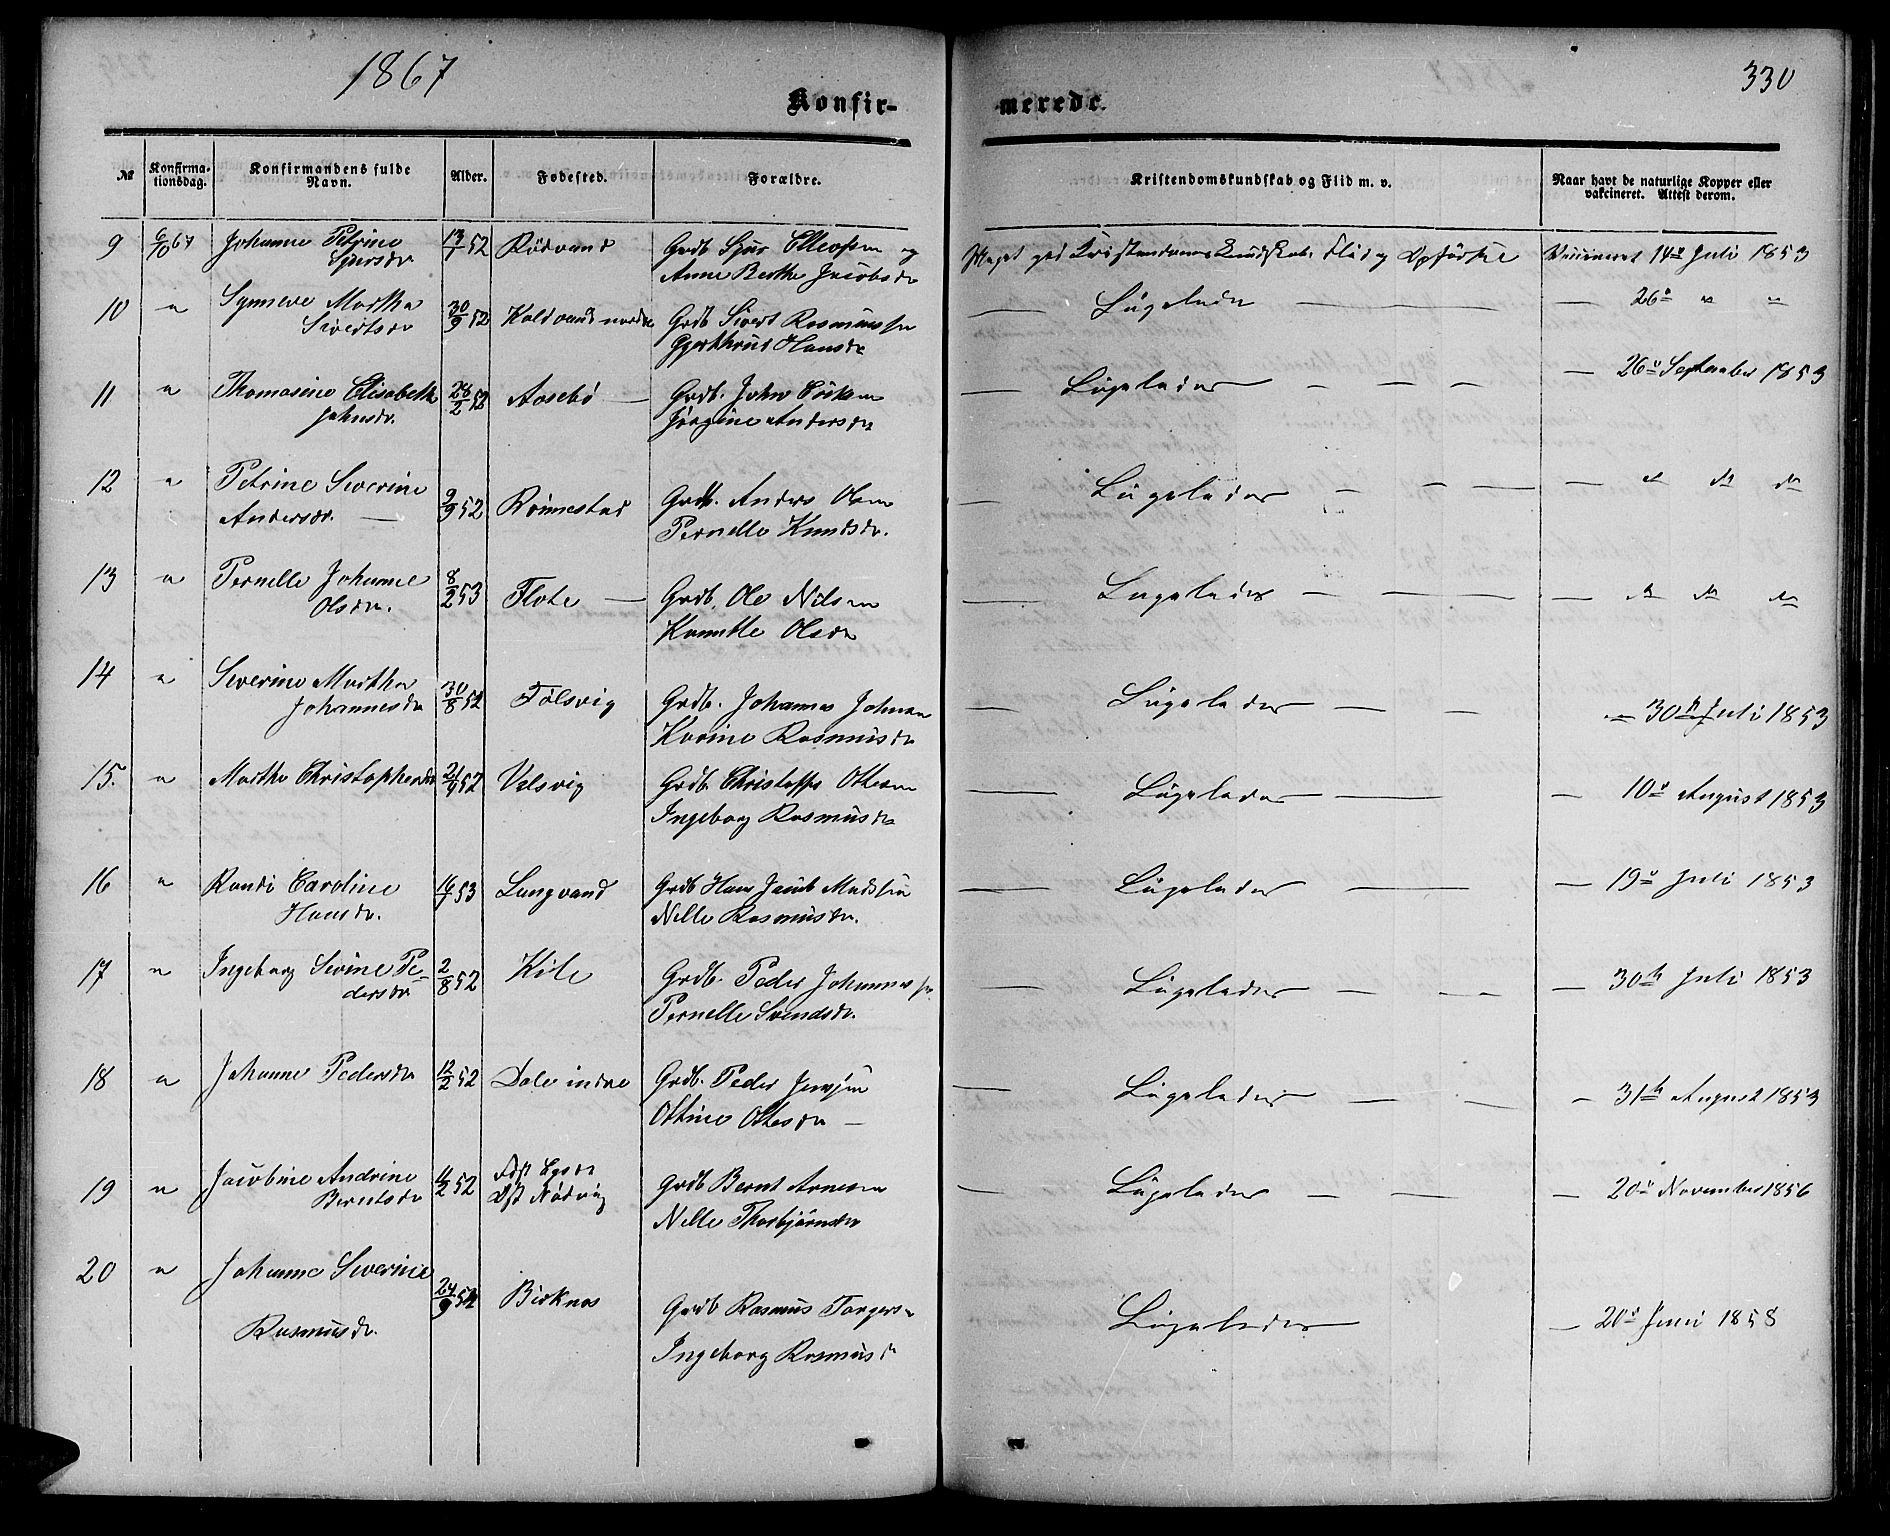 1867
330
Konfir-
merede.
№
Konfirma-
tionsdag.
Konfirmandens fulde
Navn.
Alder.
Fødested.
Forældre.
Kristendomskundskab og Flid m. v.
Naar havt de naturlige Kopper eller
vakcineret. Attest derom.
9 6/10 67 Johanne Petrine 13/7 52 Rødvand Grdb. Sjur Ellevsen og Meget god Kristendoms Kundskab. Flid og Opførsel Vaccineret 14de Juli 1853
Sjursdr Anne Berthe Jacobsdr
10 " Synneve Martha 30/9 52 Kaldvand nordre Grdb Sivert Rasmussen — Ligeledes — — 26de " "
Sivertsdr Gjerthrud Hansdr
11 " Thomasine Elisabeth 28/2 52 Aasebø — Grdb. John — Ligeledes — — — — 26de September 1853
Johnsdr. Jørgine Andersdr
12 " Petrine Severine 9/9 52 Rønnestad Grdb. Anders Olsen — Ligeledes — — — — " " "
Andersdr. — Pernelle Knudsdr.
13 " Pernelle Johanne 8/2 53 Flote — Grdb. Ole Nilsen — Ligeledes — — — — " " "
Olsdr. Olsdr
14 " Severine Martha 30/8 52 Følsvig Grdb. Johannes Johnsen — Ligeledes — — — 30te Juli 1853
Johannesdr Karine Rasmusdr
15. " Marthe Christophersdr 21/4 52 Velsvig Grdb. Christoffer Ottesen — Ligeledes — — 10de August 1853
Ingeborg Rasmusdr
16 " Randi Caroline 14/7 53 Langvand Grdb Hans Jacob Madssen — Ligeledes — — — 19de Juli 1853
Hansdr. Nille Rasmusdr.
17 " Ingeborg Sivine Pe- 2/8 52 Kile Grdb. Peder Johannessen — Ligeledes — — — 30te Juli 1853
dersdr Pernelle Svendsdr.
18 " Johanne Pedersdr 12/2 52 Dale indre Grdb. Peder Jensen — Ligeledes — — — 31te August 1853
Ottine Ottesdr —
19 " Jacobine Andrine 11/2 52 Fdst Grdb Bernt Arnesen — Ligeledes — — — 20de November 1856
Berntsdr Opst Nødvig Nille Thorbjørnsdr
20 " Johanne Severine 24/9 52 Birknes Grdb Rasmus Torgersen Ligeledes — 20de Juni 1858
Rasmusdr. Ingeborg Rasmusdr